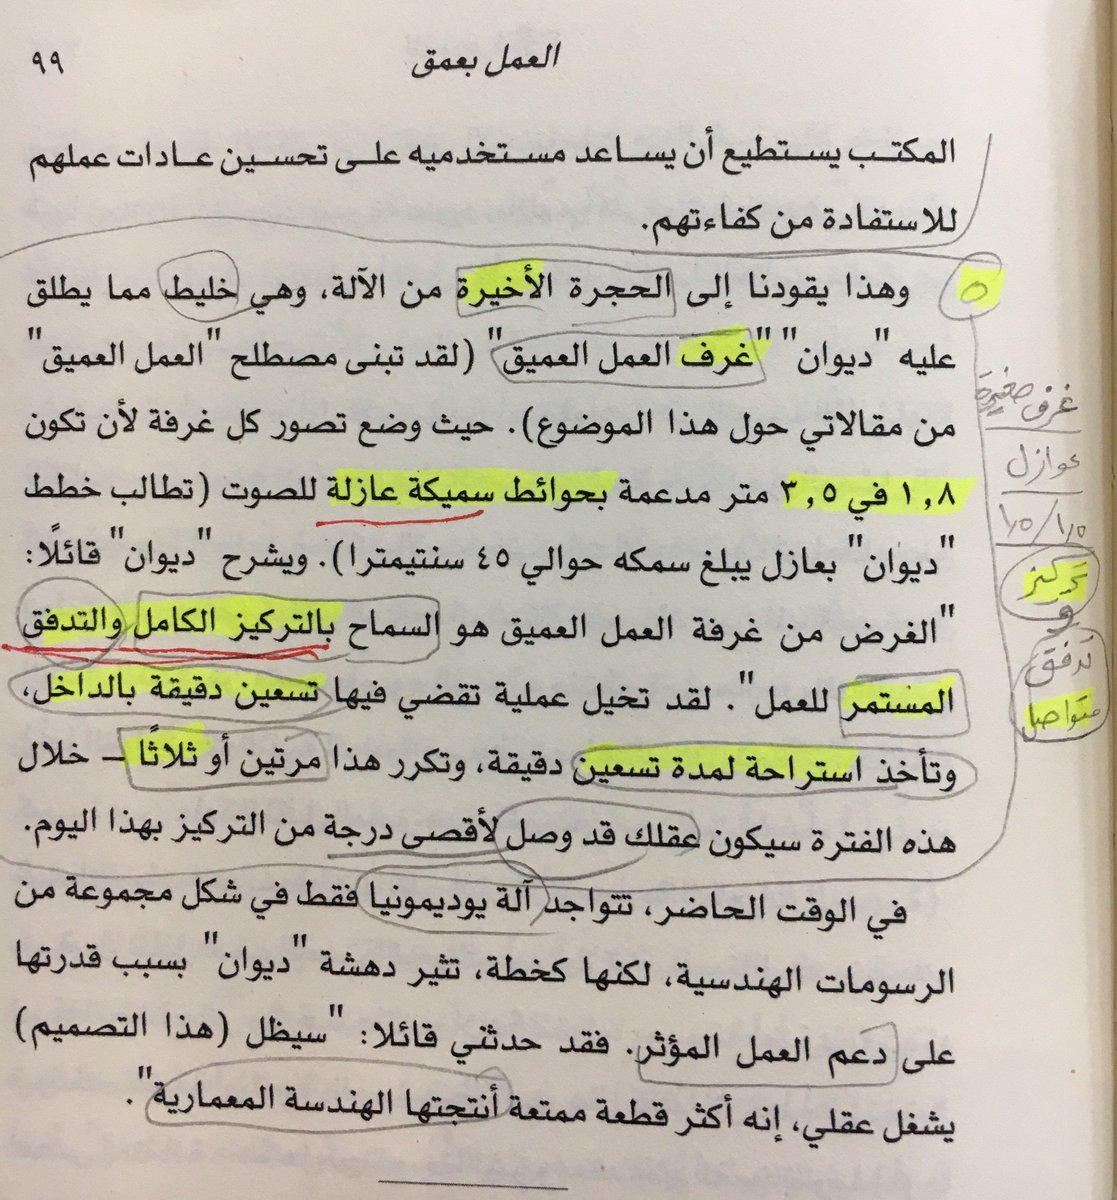 العمل بعمق
٩٩
المكتب يستطيع أن يساعد مستخدميه على تحسين عادات عملهم
للاستفادة من كفاءتهم.
٥
وهذا يقودنا إلى الحجرة الأخيرة من الآلة، وهي خليط مما يطلق
عليه "ديوان" "غرف العمل العميق" (لقد تبنى مصطلح "العمل العميق"
من مقالاتي حول هذا الموضوع). حيث وضع تصور كل غرفة لأن تكون
١,٨ في ٣,٥ متر مدعمة بحوائط سميكة عازلة للصوت (تطالب خطط
"ديوان" بعازل يبلغ سمكه حوالي ٤٥ سنتيمترا). ويشرح "ديوان" قائلًا:
"الغرض من غرفة العمل العميق هو السماح بالتركيز الكامل والتدفق
المستمر للعمل". لقد تخيل عملية تقضي فيها تسعين دقيقة بالداخل،
وتأخذ استراحة لمدة تسعين دقيقة، وتكرر هذا مرتين أو ثلاثًا – خلال
هذه الفترة سيكون عقلك قد وصل لأقصى درجة من التركيز بهذا اليوم.
في الوقت الحاضر، تتواجد آلة يوديمونيا فقط في شكل مجموعة من
الرسومات الهندسية، لكنها كخطة، تثير دهشة "ديوان" بسبب قدرتها
على دعم العمل المؤثر. فقد حدثني قائلا: "سيظل (هذا التصميم)
يشغل عقلي، إنه أكثر قطعة ممتعة أنتجتها الهندسة المعمارية".
غرف صغيرة
عوازل
١٫٥/١٫٥
تركيز
و
تدفق
متواصل